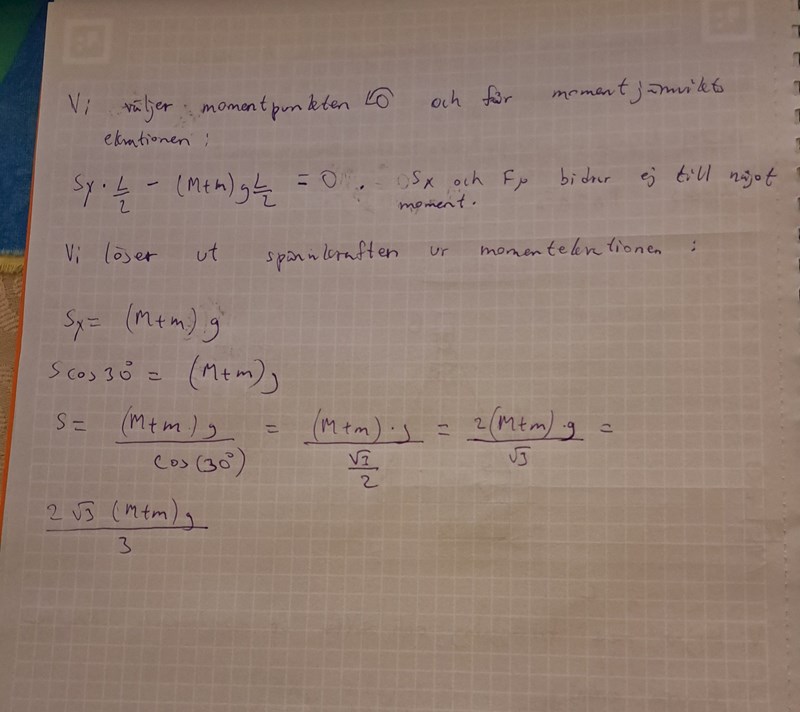 Vi väljer momentpunkten O och får momentjämvikts
ekvationen:
Sy · L/2 - (M+m)g L/2 = 0. Sx och Fμ bidrar ej till något
moment.
Vi löser ut spännkraften ur momentekvationen:
Sy = (M+m) g
S cos 30° = (M+m)g
S = (M+m) g / cos(30°) = (M+m)·g / (√3/2) = 2(M+m)·g / √3 =
2 √3 (M+m)g / 3